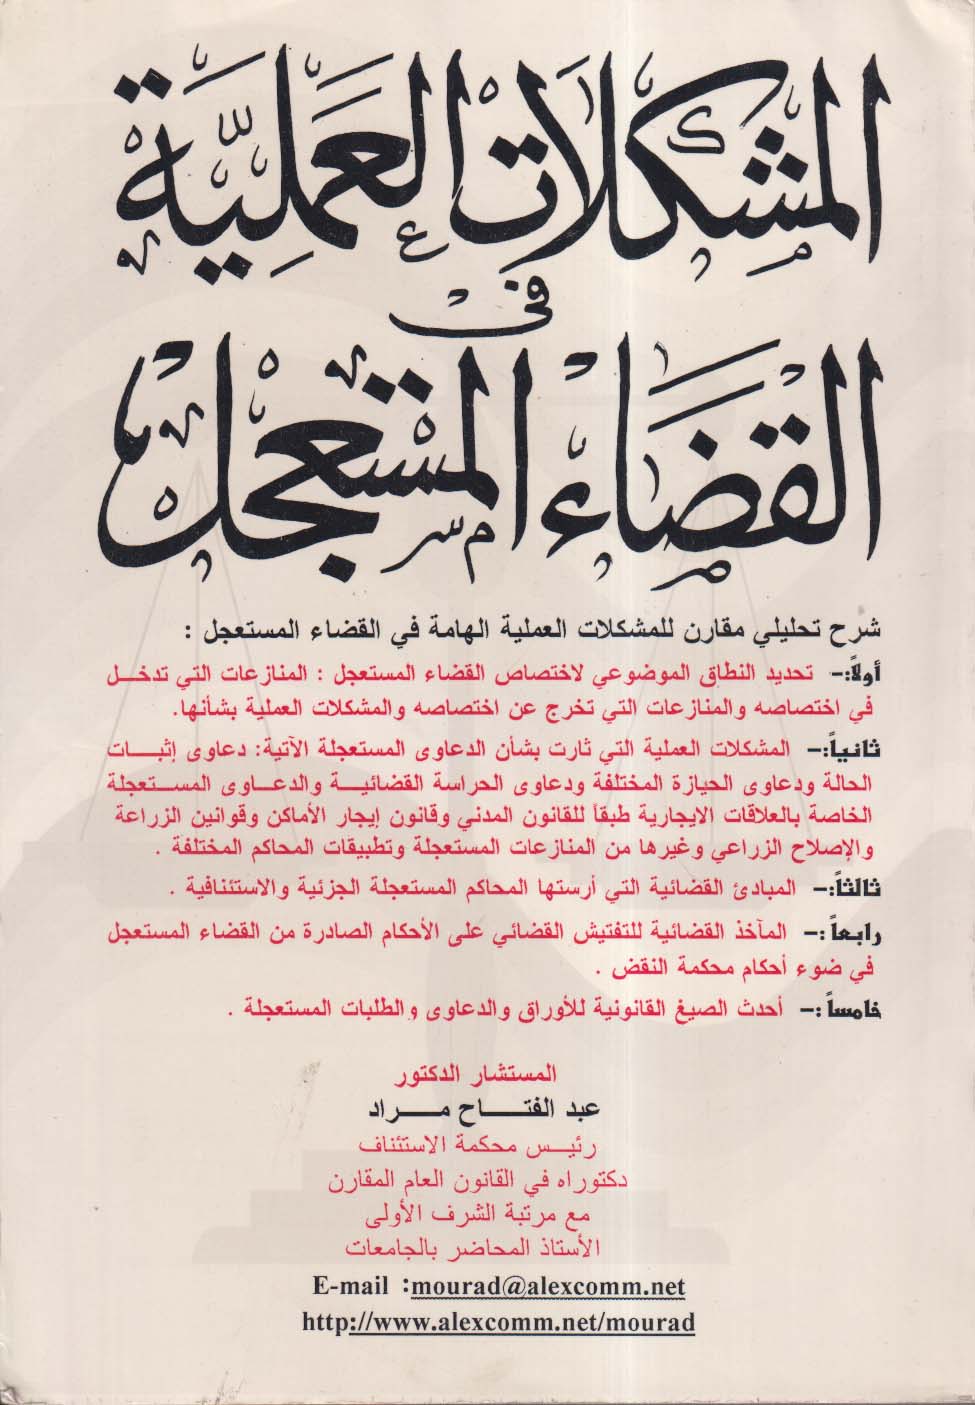 المشكلات العملية
فى
القضاء المستعجل
شرح تحليلي مقارن للمشكلات العملية الهامة في القضاء المستعجل :
أولاً:- تحديد النطاق الموضوعي لاختصاص القضاء المستعجل : المنازعات التي تدخل
في اختصاصه والمنازعات التي تخرج عن اختصاصه والمشكلات العملية بشأنها.
ثانياً:- المشكلات العملية التي ثارت بشأن الدعاوى المستعجلة الآتية: دعاوى إثبات
الحالة ودعاوى الحيازة المختلفة ودعاوى الحراسة القضائية والدعاوى المستعجلة
الخاصة بالعلاقات الايجارية طبقاً للقانون المدني وقانون إيجار الأماكن وقوانين الزراعة
والإصلاح الزراعي وغيرها من المنازعات المستعجلة وتطبيقات المحاكم المختلفة .
ثالثاً:- المبادئ القضائية التي أرستها المحاكم المستعجلة الجزئية والاستئنافية .
رابعاً:- المآخذ القضائية للتفتيش القضائي على الأحكام الصادرة من القضاء المستعجل
في ضوء أحكام محكمة النقض .
خامساً:- أحدث الصيغ القانونية للأوراق والدعاوى والطلبات المستعجلة .
المستشار الدكتور
عبد الفتاح مراد
رئيس محكمة الاستئناف
دكتوراه في القانون العام المقارن
مع مرتبة الشرف الأولى
الأستاذ المحاضر بالجامعات
E-mail :mourad@alexcomm.net
http://www.alexcomm.net/mourad